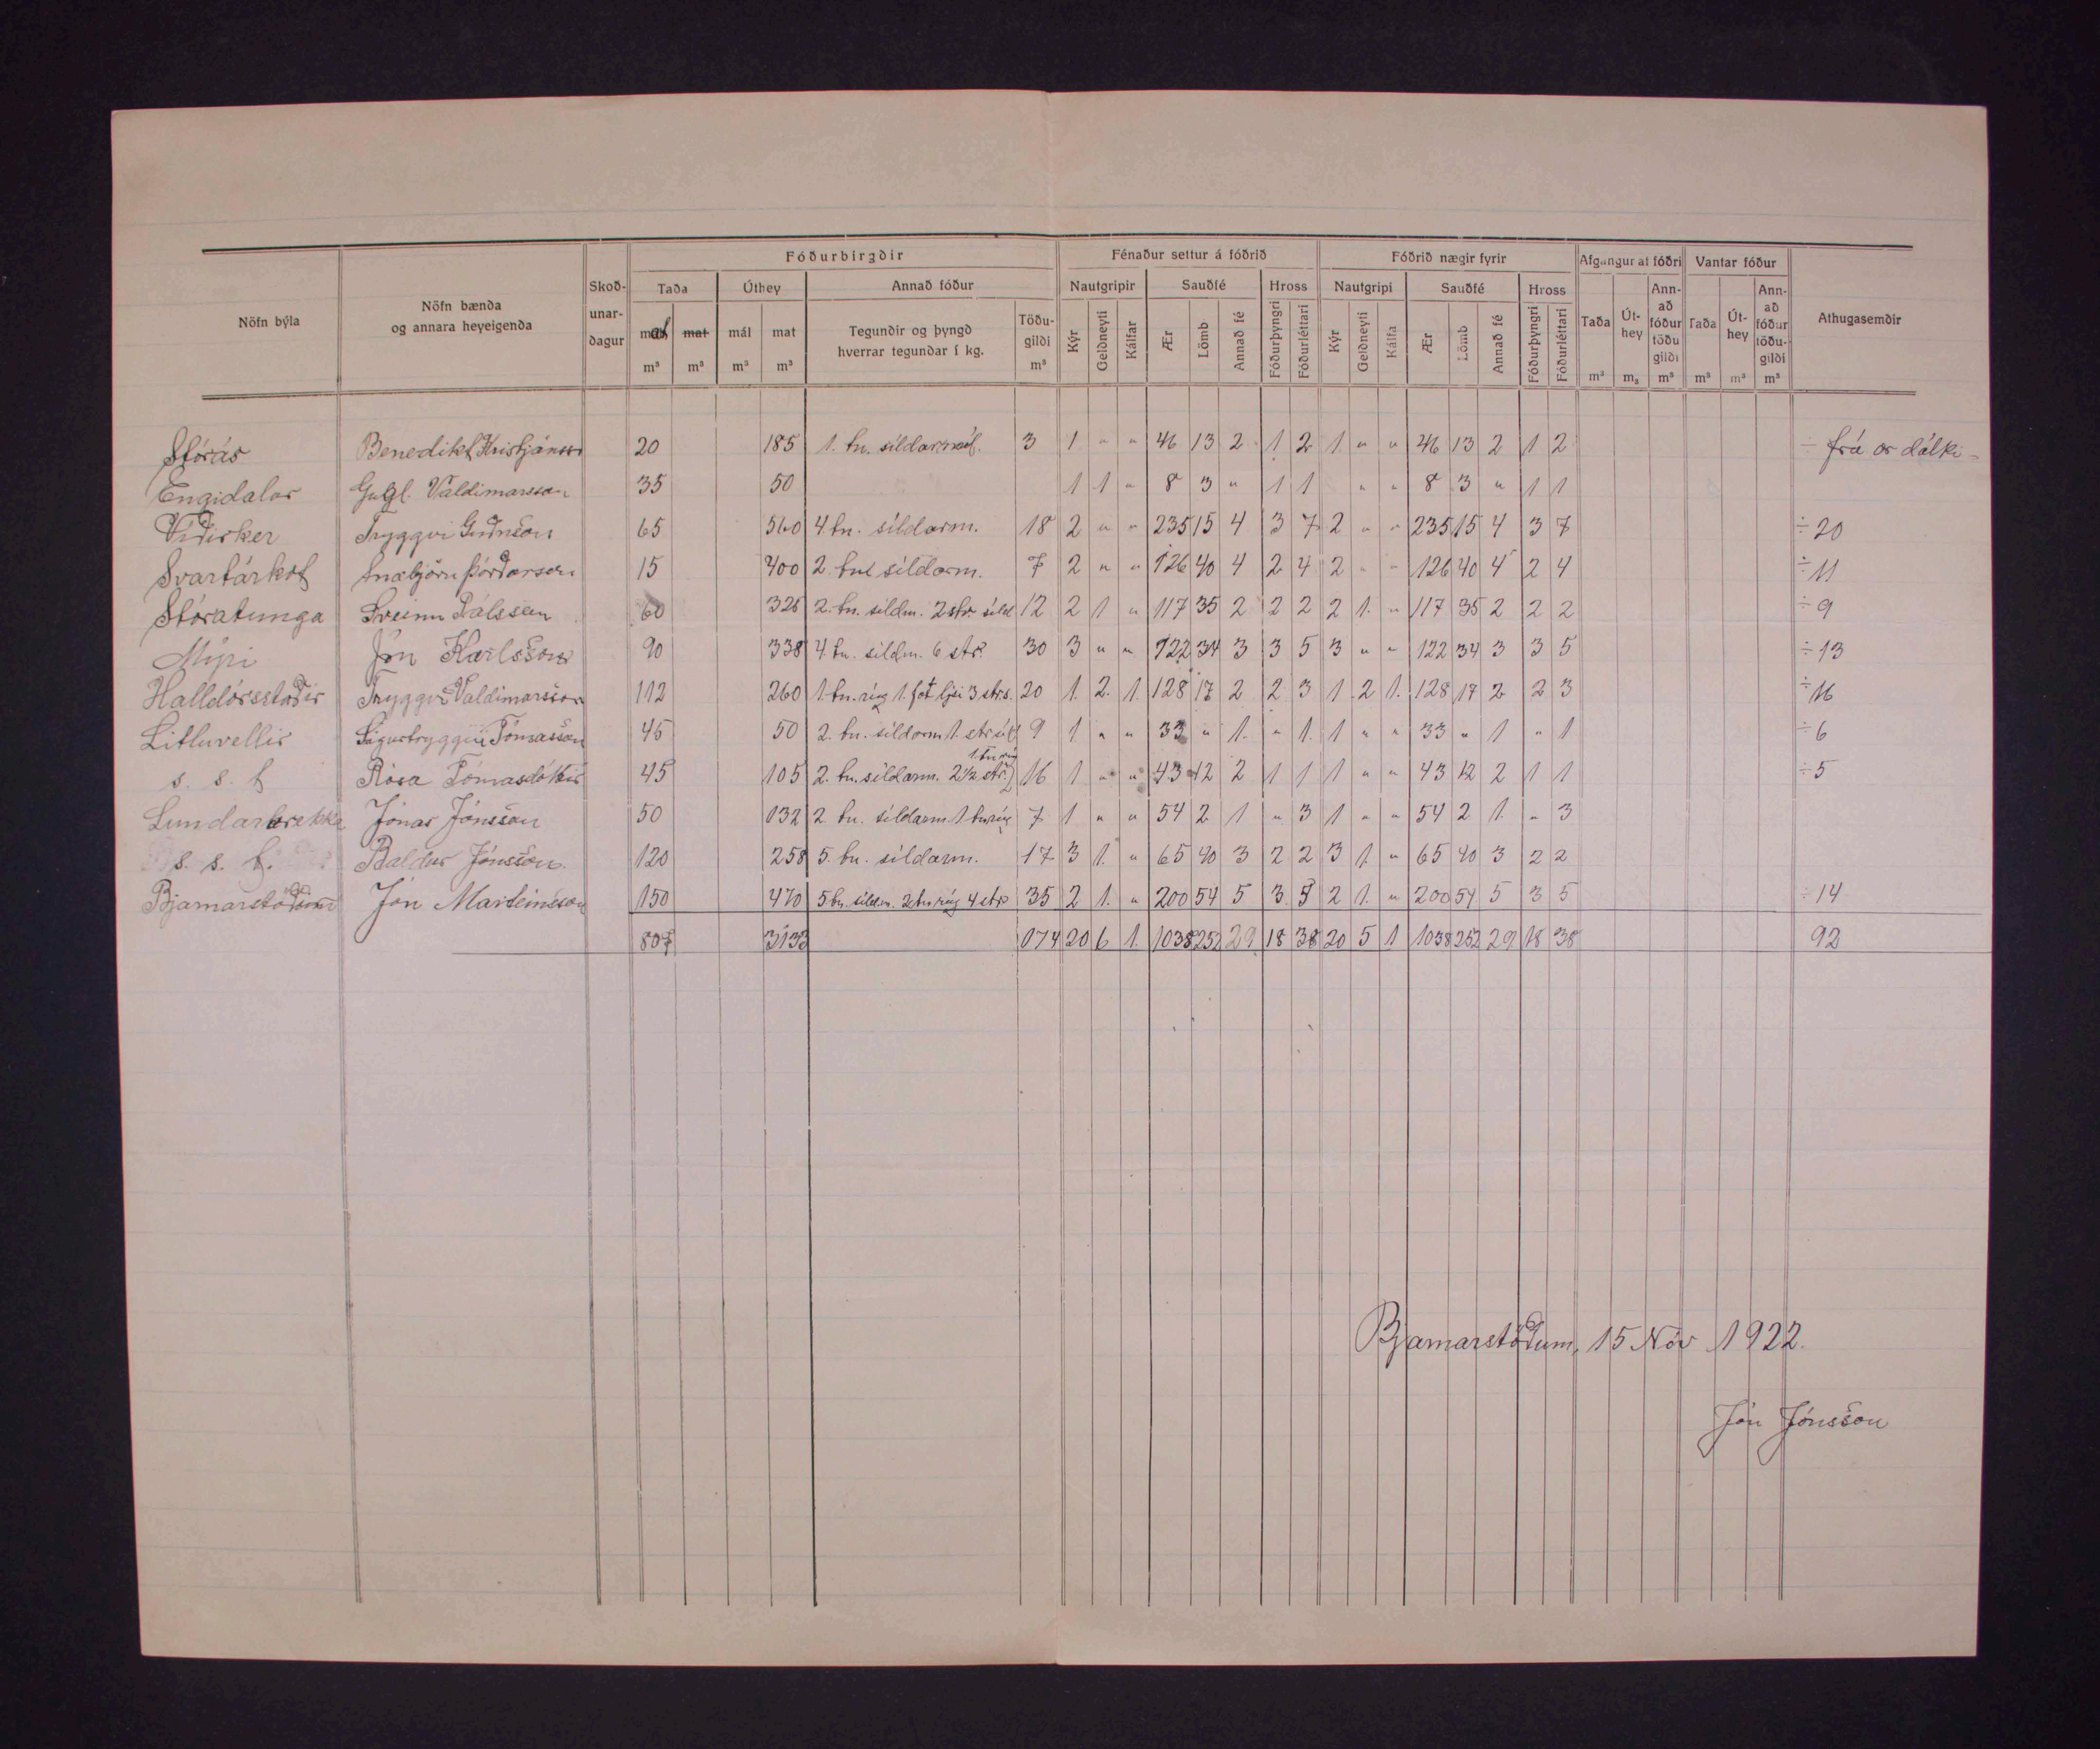 Fóðurbirgðir Fénaður settur á fóðrið Fóðrið nægir fyrir Afgangur af fóðri Vantar fóður
Nöfn býla Nöfn bænda og annara heyeigenda Skoð-unar-dagur Taða Úthey Annað fóður Nautgripir Sauðfé Hross Nautgripi Sauðfé Hross Taða Út-hey Ann-að fóður töðu gildi Taða Út-hey Ann-að fóður töðu-gildi Athugasemdir
mat mál mat Tegundir og þyngd hverrar tegundar í kg. Töðu-gildi Kýr Geldneyti Kálfar Ær Lömb Annað fé Fóðurþyngri Fóðurléttari Kýr Geldneyti Kálfa Ær Lömb Annað fé Fóðurþyngri Fóðurléttari
m³ m³ m³ m³ m³ m³ m³ m³ m³ m³ m³
Stórás Benedikt Kristjánsson 20 185 1. tn. síldarmél. 3 1 " " 46 13 2 1 2 1 " " 46 13 2 1 2 ÷ frá or dálki -
Engidalur Valdimarsson 35 50 1 1 " 8 3 " 1 1 " " 8 3 " 1 1
Víðirker Tryggvi Guðnason 65 560 4 tn. síldarm. 18 2 " " 235 15 4 3 7 2 " " 235 15 4 3 7 ÷ 20
Svartárkot Snæbjörn Þórðarson 15 400 2 síldarm. 7 2 " " 126 40 4 2 4 2 " " 126 40 4 2 4 ÷ 11
Stóratunga Sveinn Pálsson 60 325 2. tn. síldm. 2 str. síld 12 2 1 " 117 35 2 2 2 2 1. " 117 35 2 2 2 ÷ 9
Mýri Jón Karlsson 90 338 4. tn. síldm. 6 str. 30 3 " " 122 34 3 3 5 3 " " 122 34 3 3 5 ÷ 13
Halldórsstaðir Tryggvi Valdimarsson 112 260 1. tn. rúg 1. fat lýsi 3 strs. 20 1. 2. 1. 128 17 2 2 3 1 2 1. 128 17 2 2 3 ÷ 16
Litluvellir Sigurtryggvi Tómasson 45 50 2. tn. síldarm 1. str síld 9 1. " " 33 " 1. " 1. 1 " " 33 " 1 " 1 ÷ 6
s. s. t Rósa Tómasdóttir 45 105 2. tn. síldarm. 2½ str. 1. tn rúg 16 1 " " 43 12 2 1 1 1 " " 43 12 2 1 1 ÷ 5
Lundarbrekka Jónas Jónsson 50 132 2 tn. síldarm 1. tn rúg 7 1 " " 54 2 1 " 3 1 " " 54 2 1. " 3
s. s. t. Baldur Jónsson. 120 258 5. tn. síldarm. 17 3 1. " 65 40 3 2 2 3 1. " 65 40 3 2 2
Bjarnarstöðum Jón Marteinsson 150 470 5 tn. síldm. 2 tn rúg 4 str 35 2 1. " 200 54 5 3 5 2 1. " 200 54 5 3 5 ÷ 14
807 3133 174 20 6 1. 1038 252 29 18 38 20 5 1 1038 252 29 18 38 92
Bjarnarstöðum, 15 Nóv 1922.
Jón Jónsson